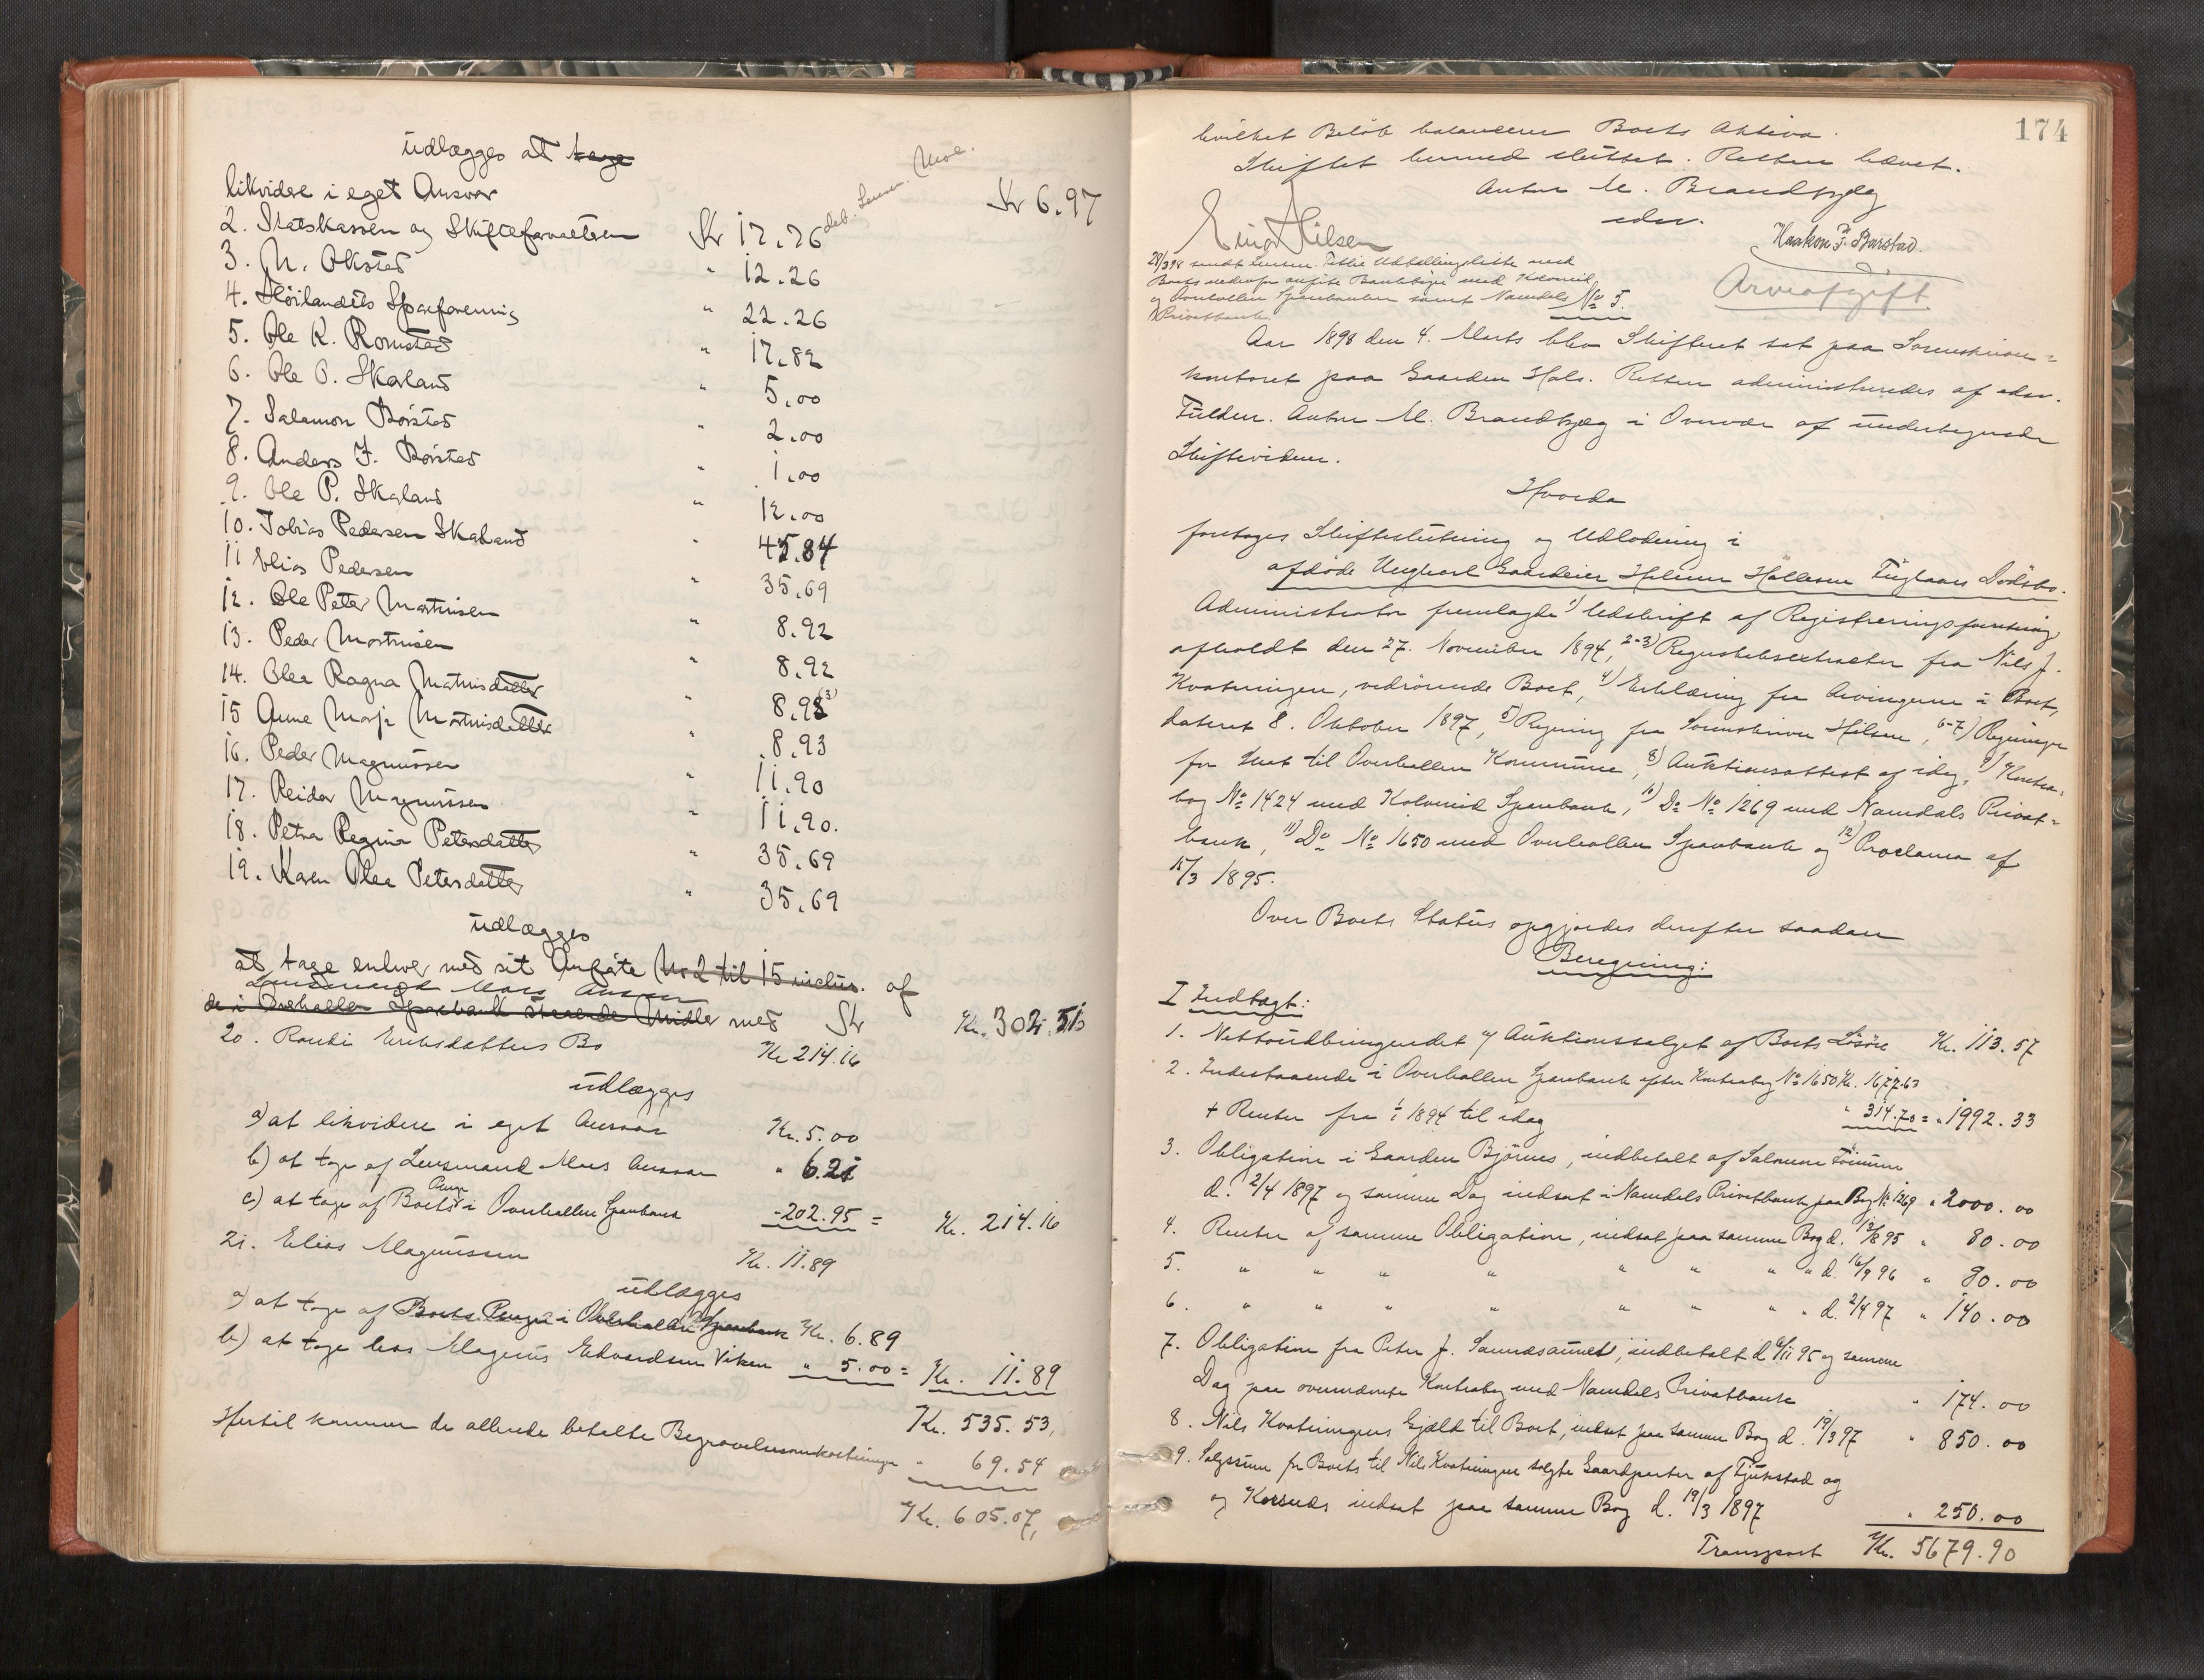 udlægges at tage
likvidere i eget Ansvar Kr 6.97
2. Statskassen og Skifteforvaltern Kr 17.76 deb. Lensm. Moe.
3. M. Okstad " 12.26
4. Høilandets Spareforening " 22.26
5. Ole K. Romstad " 17.82
6. Ole O. Skarland " 5.00
7. Salamon Børstad " 2.00
8. Anders J. Børstad " 1.00
9. Ole P. Skaland " 12.00
10. Tobias Pedersen Skaland " 45.84
11 Elias Pedersen " 35.69
12. Ole Peter Martinsen " 8.92
13. Peder Martinsen " 8.92
14. Olea Ragna Martinisdatter " 8.93
15 Anne Marja Martinisdatter " 8.93
16. Peder Magnussen " 11.90
17. Reidar Magnussen " 11.90.
18. Petra Regina Petersdatter " 35.69
19. Karen Olea Petersdatter " 35.69
udlægges
at tage enhver med sit Anførte No 2 til 15 inclus. af
Lensmand Moes Ansvar
de i Overhallen Sparebank staaende Midler med Kr Kr. 302.51
20. Randi Eriksdatters Bo Kr 214.16
udlægges
a) at likvidere i eget Ansvar Kr. 5.00
b) at tage af Lensmand Moes Ansvar " 6.21
c) at tage af Boets Penge i Overhallen Sparebank - 202.95 = Kr. 214.16
21. Elias Magnussen Kr. 11.89
udlægges
a) at tage af Boets Penge i Overhallen Sparebank Kr. 6.89
b) at tage hos Magnus Edvardsen Viken " 5.00 = Kr. 11.89
Kr. 535.53,
Hertil kommer de allerede betalte Begravelsesomkostninger " 69.54
Kr. 605.07,
174
hvilket Beløb balancerer Boets Aktiva.
Skiftet hermed sluttet. Retten hævet.
Anton M. Brandtzæg
edsv.
Einar Hilsen Haakon P. Barstad.
28/3 98 sendt Lensm. Utdellingsliste med
Boets anførte Bankbøger med Kolvereid
og Overhallen Sparebanker samt Namdals
Privatbank.
Arveafgift
No 5.
Aar 1898 den 4. Marts blev Skifteret sat paa Sorenskriver-
kontoret paa Gaarden Hals. Retten administreredes af edsv.
Fuldm. Anton M. Brandtzæg i Overvær af undertegnede
Skiftevidner.
Hvorda
foretoges Skifteslutning og Udlodning i
afdøde Ungkarl Gaardeier Helmer Hallesen Fuglaars Dødsbo.
Administrator fremlagde 1) Udskrift af Registreringsforretning
afholdt den 27. November 1894, 2-3) Regnskabsextracter fra Nils J.
Kvatningen, vedrørende Boet, 4) Erklæring fra Arvingerne i Boet,
dateret 8. Oktober 1897, 5) Regning fra Sorenskriver Hilsen, 6-7) Regninger
for Skat til Overhallen Kommune, 8) Auktionsattest af idag, 9) Kontra-
bog No 1424 med Kolvereid Sparebank, 10) Do No 1269 med Namdals Privat-
bank, 11) Do No 1650 med Overhallen Sparebank og 12) Proclama af
15/3 1895.
Over Boets Status opgjordes derefter saadan
Beregning:
I Indtægt:
1. Nettoudbringendet af Auktionssalget af Boets Løsøre Kr. 113.57
2. Indestaaende i Overhallen Sparebank efter Kontrabog No 1650 Kr. 1677.63
+ Renter fra 1/1 1894 til idag " 314.70 = " 1992.33
3. Obligation i Gaarden Bjørnes, indbetalt af Salamon
d. 2/4 1897 og samme Dag indsat i Namdals Privatbank paa Bog No 1269 " 2000.00
4. Renter af samme Obligation, indsat paa samme Bog d. 12/8 95 " 80.00
5. " " " " " " " " d. 16/9 96 " 80.00
6. " " " " " " " " d. 2/4 97 " 140.00
7. Obligation fra Peter J. Sanndsaunet, indbetalt d. 6/11 95 og samme
Dag paa ovennævnte Kontrabog med Namdals Privatbank " 174.00
8. Nils Kvatningens Gjæld til Boet, indsat paa samme Bog d. 19/3 97 " 850.00
9. Salgssum for Boets til Nils Kvatningen solgte Gaardparter af Tjukstad og
og Korsnes indsat paa samme Bog d. 19/3 1897 " 250.00
Transport Kr. 5679.90